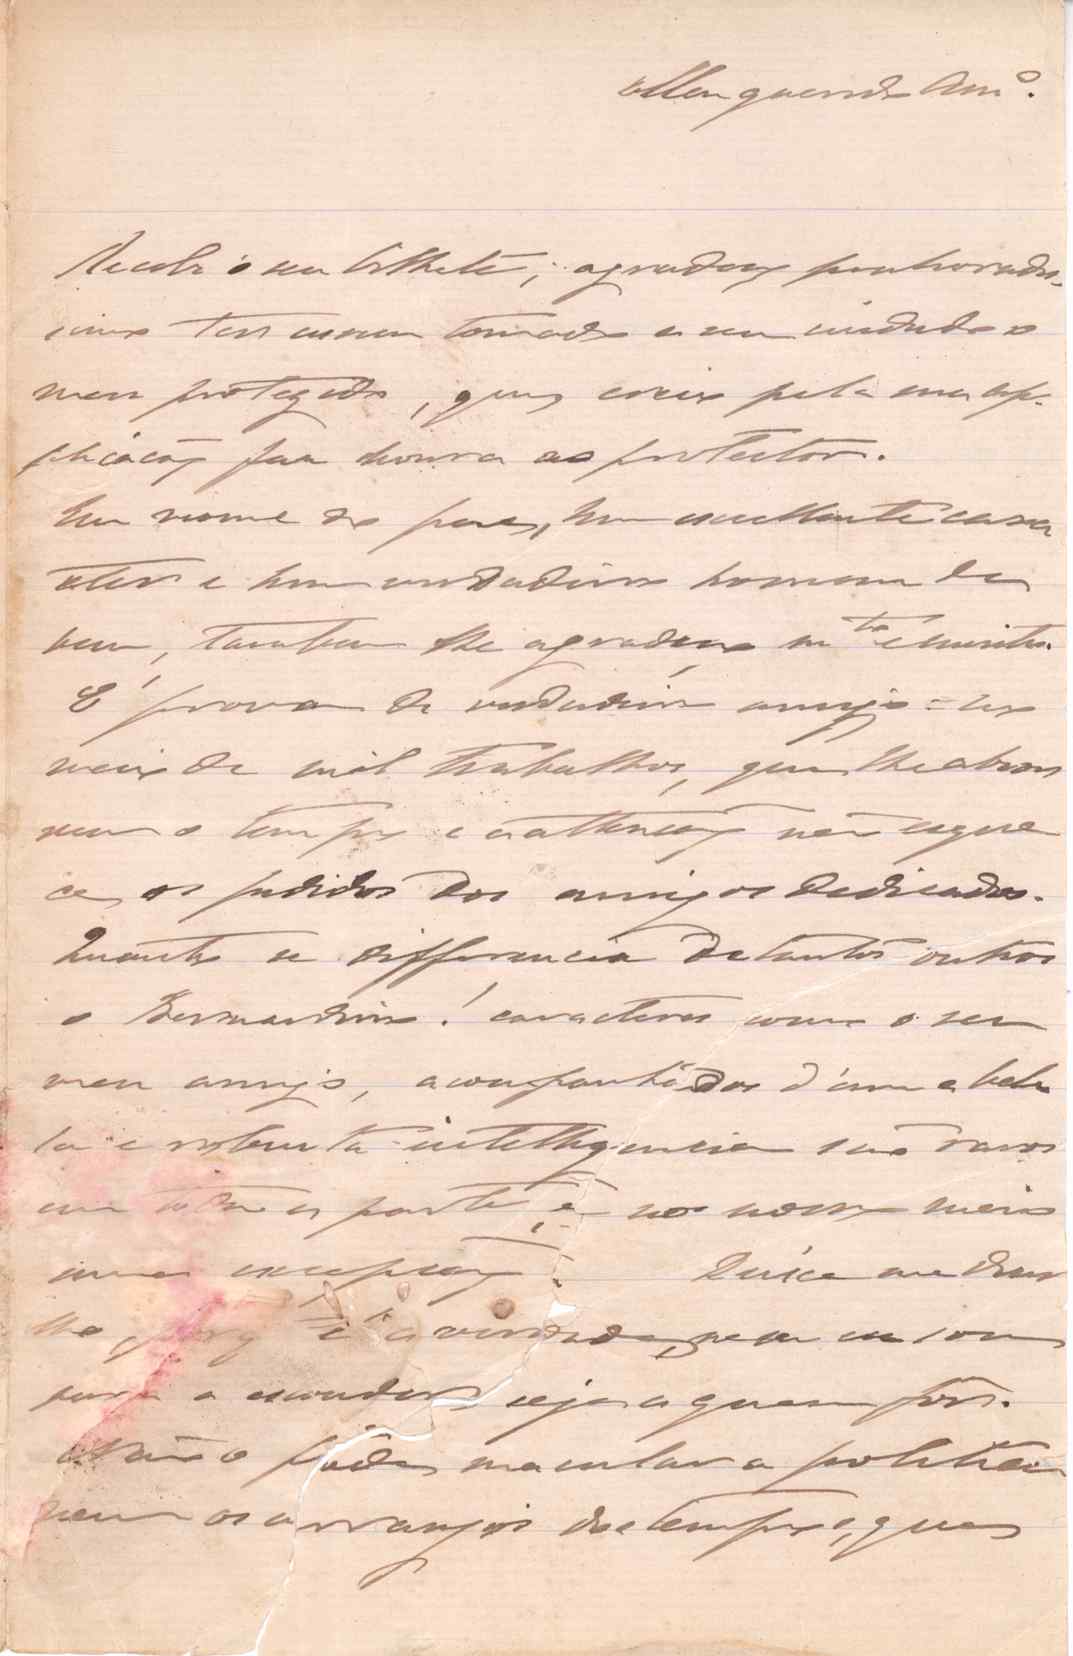 Meu querido Amº.
Recebi o seu bilhete; agradeço penhorado,
como ter tomado a seu cuidado o
meu protegido, que, creio pela sua ap-
plicação fará honra ao protector.
Em nome do pae, hum excellente cara
cter e hum verdadeiro homem de
bem, tambem lhe agradeço mto e muito.
É prova de verdadeiro amigo: no
meio de mil trabalhos, que lhe absor
vem o tempo e a attenção não esque
ce, os pedidos dos amigos dedicados.
Quanto se differencia de tantos outros
o Bernardino! caracteres como o seu
meu amigo, acompanhados d'uma bel
la e robusta intelligencia são raros
em toda a parte, e no nosso meio
uma excepção. Deixe me dizer
lho, porq é a verdade, nem eu sou
para a esconder, seja a quem fôr.
Não o póde macular a politica
nem os arranjos do tempo, que